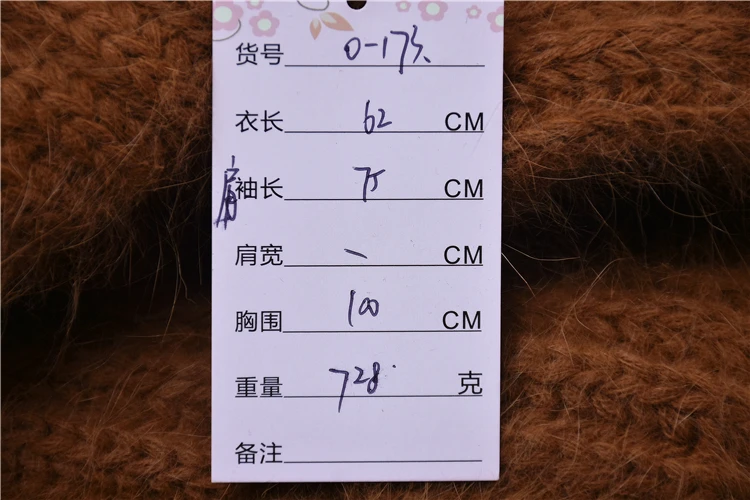 货号 0-173
衣长 62 CM
肩袖长 75 CM
肩宽 - CM
胸围 100 CM
重量 728 克
备注